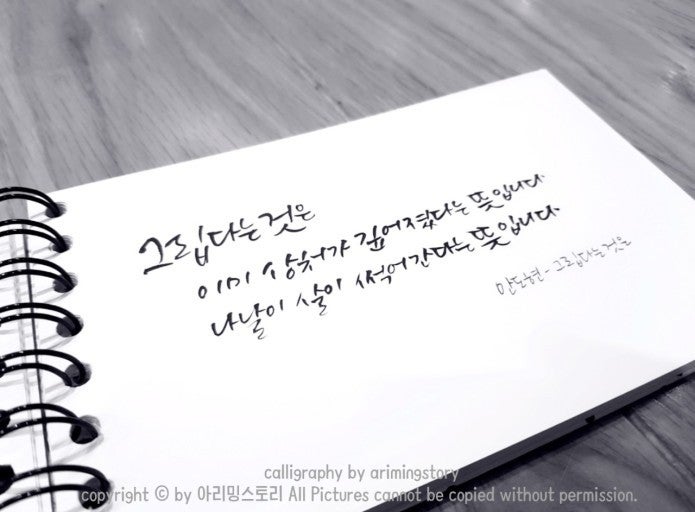 그립다는 것은
이미 상처가 깊어졌다는 뜻입니다
나날이 살이 썩어간다는 뜻입니다.
안도현 - 그립다는 것은
calligraphy by arimingstory
copyright © by 아리밍스토리 All Pictures cannot be copied without permission.